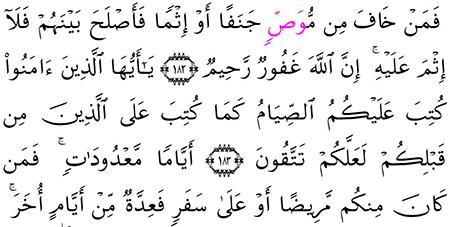 فَمَنْ خَافَ مِن مُّوَصٍّ جَنَفًا أَوْ إِثْمًا فَأَصْلَحَ بَيْنَهُمْ فَلَآ
إِثْمَ عَلَيْهِ ۚ إِنَّ ٱللَّهَ غَفُورٌ رَّحِيمٌ ﴿١٨٢﴾ يَٰٓأَيُّهَا ٱلَّذِينَ ءَامَنُوا۟
كُتِبَ عَلَيْكُمُ ٱلصِّيَامُ كَمَا كُتِبَ عَلَى ٱلَّذِينَ مِن
قَبْلِكُمْ لَعَلَّكُمْ تَتَّقُونَ ﴿١٨٣﴾ أَيَّامًا مَّعْدُودَٰتٍ ۚ فَمَن
كَانَ مِنكُم مَّرِيضًا أَوْ عَلَىٰ سَفَرٍ فَعِدَّةٌ مِّنْ أَيَّامٍ أُخَرَ ۚ